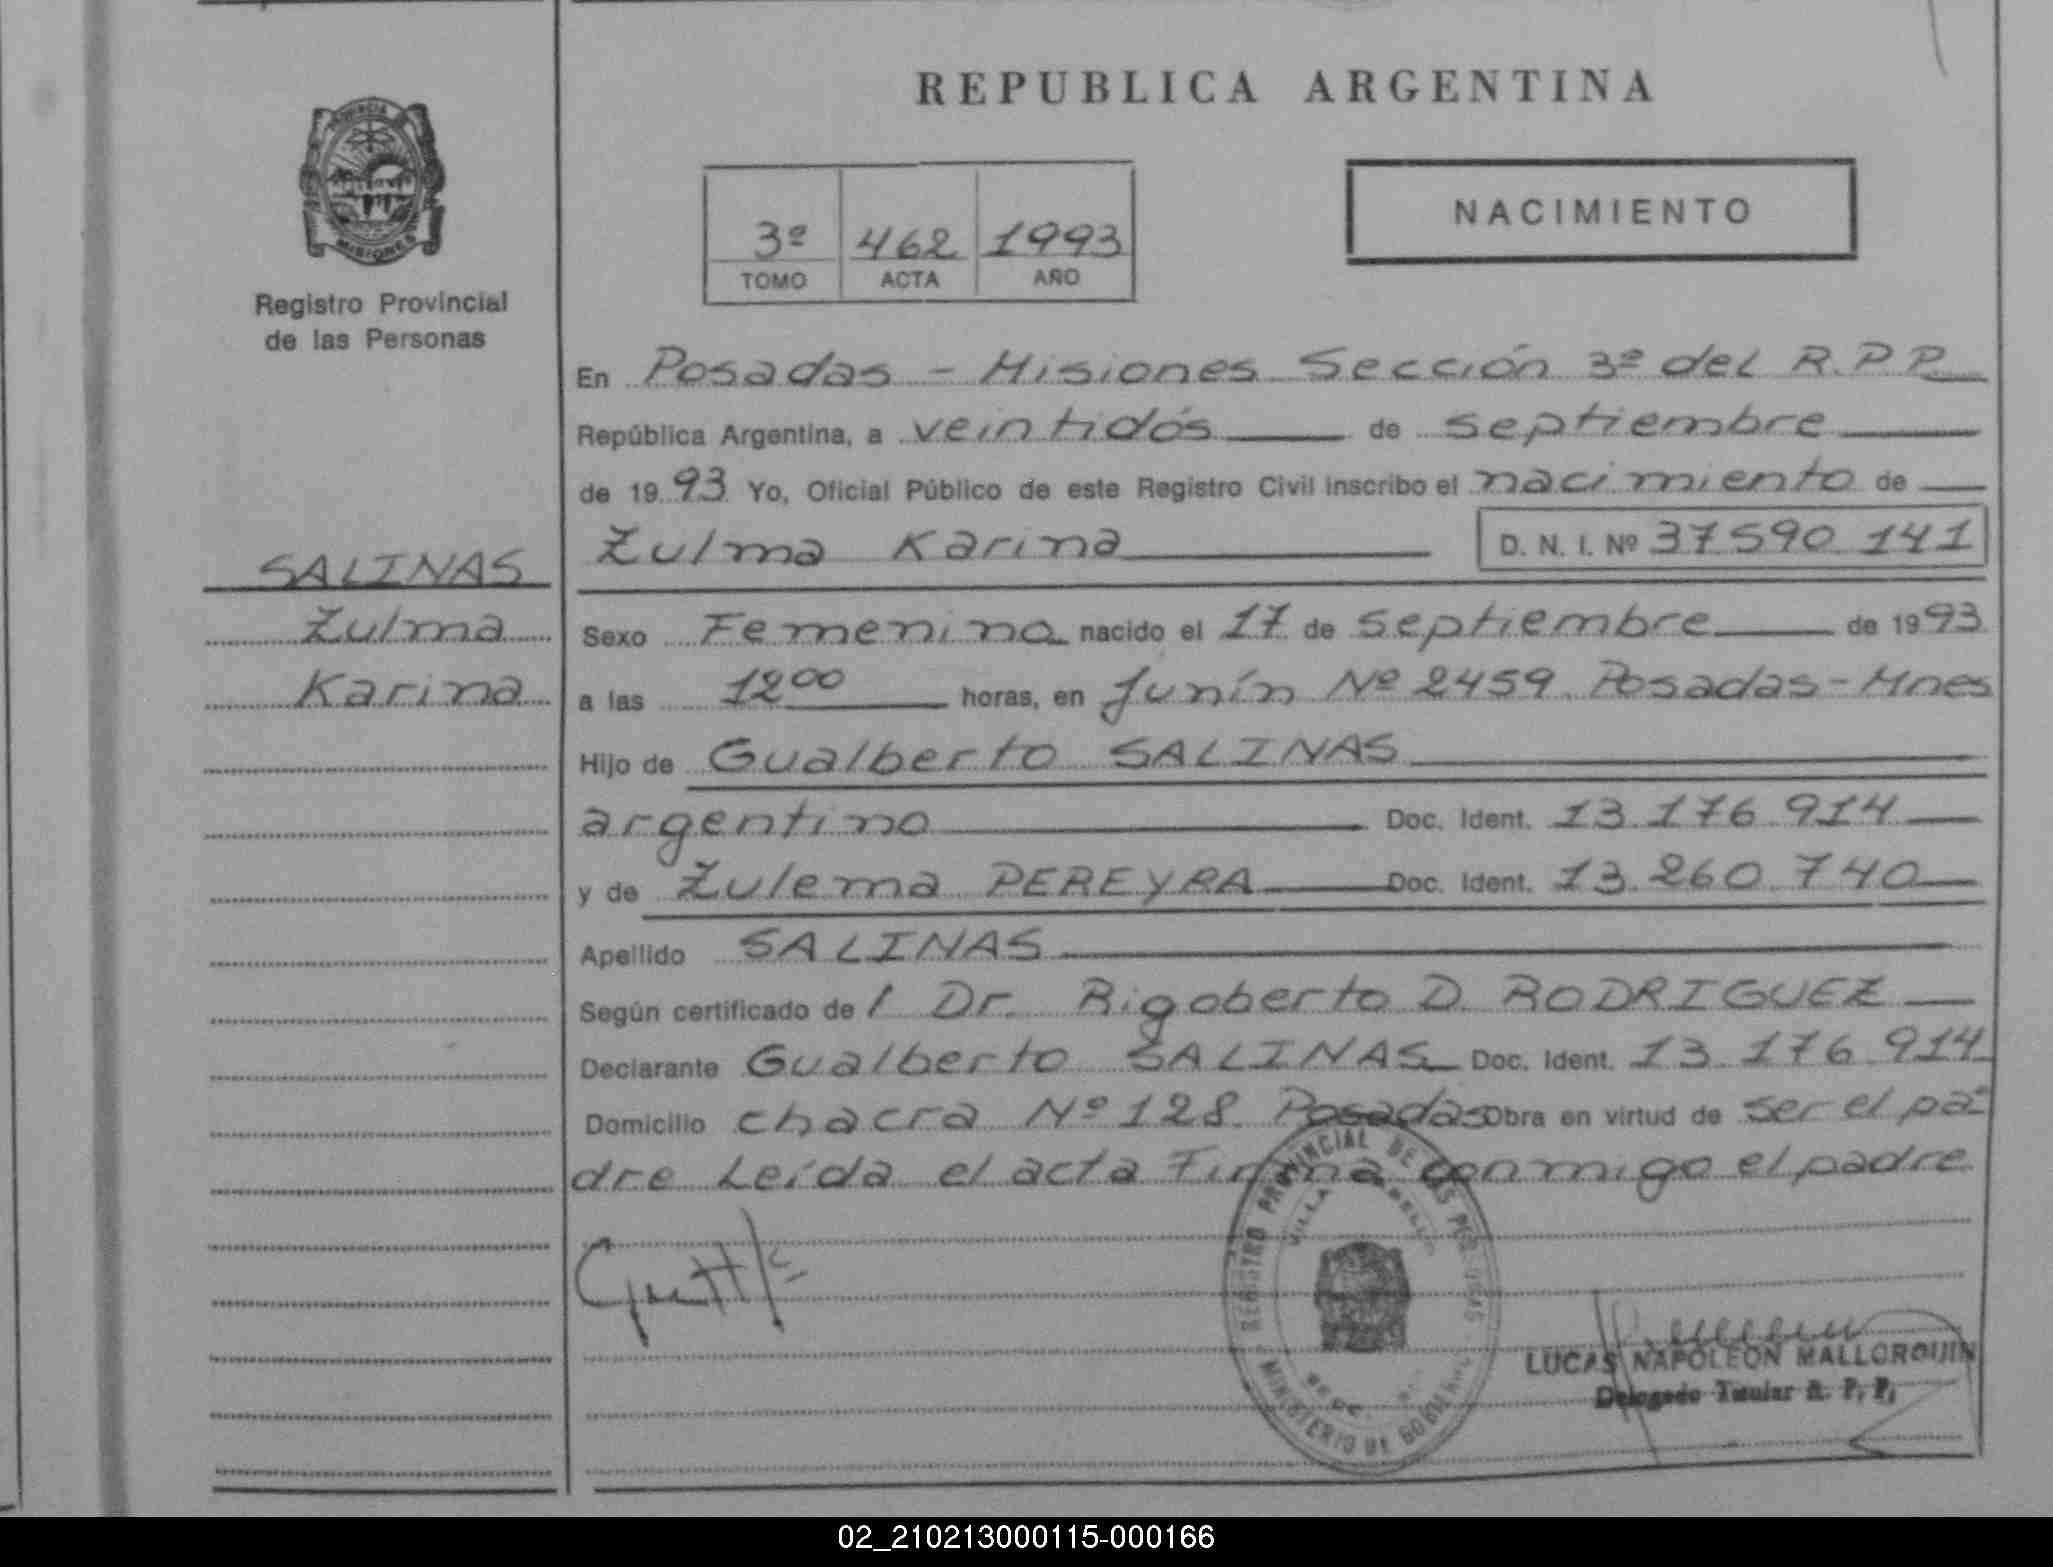 REPUBLICA ARGENTINA
PROVINCIA
MISIONES
Registro Provincial
de las Personas
3º 462 1993
TOMO ACTA AÑO
NACIMIENTO
SALINAS
Zulma
Karina
En Posadas - Misiones Sección 3º del R.P.P.
República Argentina, a veintidós de septiembre
de 1993 Yo, Oficial Público de este Registro Civil inscribo el nacimiento de
Zulma Karina D. N. I. Nº 37 590 141
Sexo Femenino nacido el 17 de septiembre de 1993
a las 12 00 horas, en Junín Nº 2459 Posadas - Mnes
Hijo de Gualberto SALINAS
argentino Doc. Ident. 13 176 914
y de Zulema PEREYRA Doc. Ident. 13 260 740
Apellido SALINAS
Según certificado de l Dr. Rigoberto D. RODRIGUEZ
Declarante Gualberto SALINAS Doc. Ident. 13 176 914
Domicilio chacra Nº 128 Posadas Obra en virtud de ser el pa-
dre Leída el acta Firma conmigo el padre
REGISTRO PROVINCIAL DE LAS PERSONAS
VILLA
MINISTERIO DE GOBIERNO
LUCAS NAPOLEON MALLORQUIN
Delegado Titular R. P. P.
02_210213000115-000166